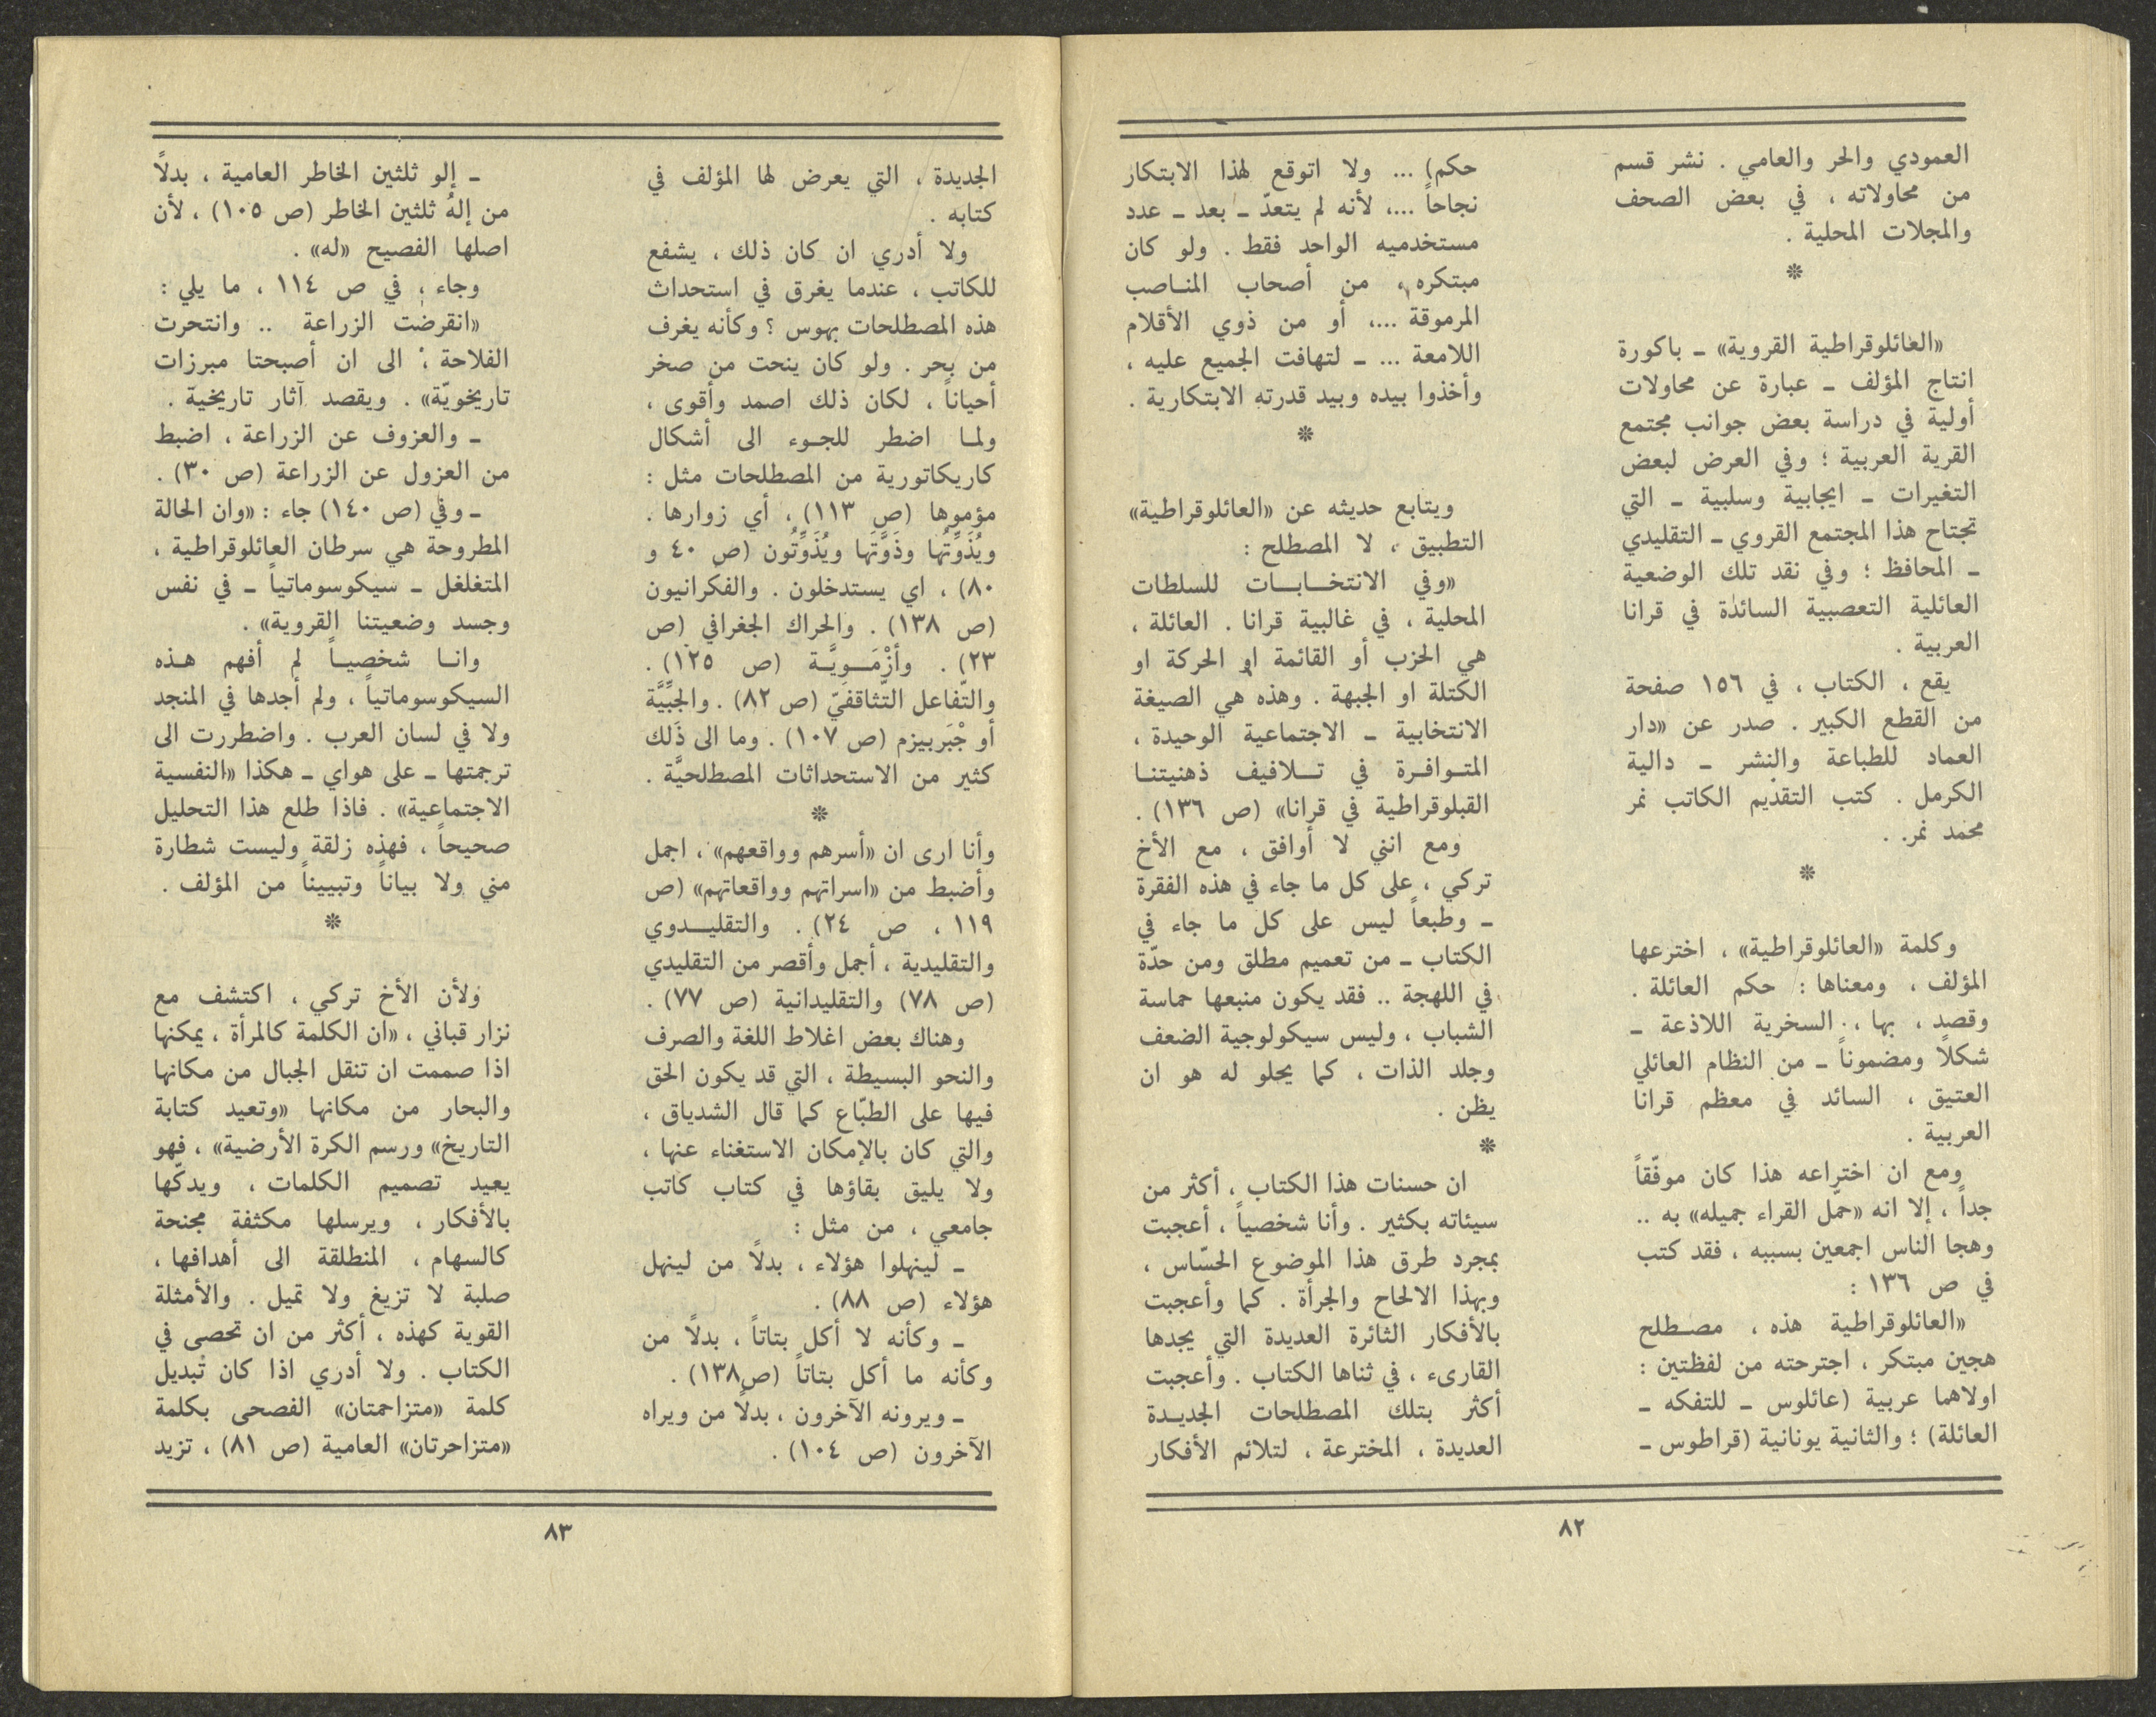 العمودي والحر والعامي . نشر قسم
من محاولاته ، في بعض الصحف
والمجلات المحلية .
*
«العائلوقراطية القروية» ـ باكورة
انتاج المؤلف ـ عبارة عن محاولات
أولية في دراسة بعض جوانب مجتمع
القرية العربية ؛ وفي العرض لبعض
التغيرات ـ ايجابية وسلبية ـ التي
تجتاح هذا المجتمع القروي ـ التقليدي
ـ المحافظ ؛ وفي نقد تلك الوضعية
العائلية التعصبية السائدة في قرانا
العربية .
يقع ، الكتاب ، في ١٥٦ صفحة
من القطع الكبير . صدر عن «دار
العماد للطباعة والنشر ـ دالية
الكرمل . كتب التقديم الكاتب نمر
محمد نمر. .
*
وكلمة «العائلوقراطية» ، اخترعها
المؤلف ، ومعناها : حكم العائلة .
وقصد ، بها ، السخرية اللاذعة ـ
شكلاً ومضموناً ـ من النظام العائلي
العتيق ، السائد في معظم قرانا
العربية .
ومع ان اختراعه هذا كان موفّقاً
جداً ، إلا انه «حمّل القراء جميله» به ..
وهجا الناس اجمعين بسببه ، فقد كتب
في ص ١٣٦ :
«العائلوقراطية هذه ، مصطلح
هجين مبتكر ، اجترحته من لفظتين :
اولاهما عربية (عائلوس ـ للتفكه ـ
العائلة) ؛ والثانية يونانية (قراطوس ـ
حكم) ... ولا اتوقع لهذا الابتكار
نجاحاً ...، لأنه لم يتعدّ ـ بعد ـ عدد
مستخدميه الواحد فقط . ولو كان
مبتكره ، من أصحاب المناصب
المرموقة ...، أو من ذوي الأقلام
اللامعة ... ـ لتهافت الجميع عليه ،
وأخذوا بيده وبيد قدرته الابتكارية .
*
ويتابع حديثه عن «العائلوقراطية»
التطبيق ، لا المصطلح :
«وفي الانتخابات للسلطات
المحلية ، في غالبية قرانا . العائلة ،
هي الحزب أو القائمة او الحركة او
الكتلة او الجبهة . وهذه هي الصيغة
الانتخابية ـ الاجتماعية الوحيدة ،
المتوافرة في تلافيف ذهنيتنا
القبلوقراطية في قرانا» (ص ١٣٦) .
ومع انني لا أوافق ، مع الأخ
تركي ، على كل ما جاء في هذه الفقرة
ـ وطبعاً ليس على كل ما جاء في
الكتاب ـ من تعميم مطلق ومن حدّة
في اللهجة .. فقد يكون منبعها حماسة
الشباب ، وليس سيكولوجية الضعف
وجلد الذات ، كما يحلو له هو ان
يظن .
*
ان حسنات هذا الكتاب ، أكثر من
سيئاته بكثير . وأنا شخصياً ، أعجبت
بمجرد طرق هذا الموضوع الحسّاس ،
وبهذا الالحاح والجرأة . كما وأعجبت
بالأفكار الثائرة العديدة التي يجدها
القارىء ، في ثناها الكتاب . وأعجبت
أكثر بتلك المصطلحات الجديدة
العديدة ، المخترعة ، لتلائم الأفكار
٨٢
الجديدة ، التي يعرض لها المؤلف في
كتابه .
ولا أدري ان كان ذلك ، يشفع
للكاتب ، عندما يغرق في استحداث
هذه المصطلحات بهوس ؟ وكأنه يغرف
من بحر . ولو كان ينحت من صخر
أحياناً ، لكان ذلك اصمد وأقوى ،
ولما اضطر للجوء الى أشكال
كاريكاتورية من المصطلحات مثل :
مؤموها (ص ١١٣) ، أي زوارها .
ويُذَوِّتُها وذَوَّتَها ويُذَوِّتُون (ص ٤٠ و
٨٠) ، اي يستدخلون . والفكرانيون
(ص ١٣٨) . والحراك الجغرافي (ص
٢٣) . وأزْمَويَّة (ص ١٢٥) .
والتّفاعل التّثاقفيّ (ص ٨٢) . والجبِّيَّة
أو جْبَربيزم (ص ١٠٧) . وما الى ذَلك
كثير من الاستحداثات المصطلحيَّة .
*
وأنا ارى ان «أسرهم وواقعهم» ، اجمل
وأضبط من «اسراتهم وواقعاتهم» (ص
١١٩ ، ص ٢٤) . والتقليدوي
والتقليدية ، أجمل وأقصر من التقليدي
(ص ٧٨) والتقليدانية (ص ٧٧) .
وهناك بعض اغلاط اللغة والصرف
والنحو البسيطة ، التي قد يكون الحق
فيها على الطبّاع كما قال الشدياق ،
والتي كان بالإمكان الاستغناء عنها ،
ولا يليق بقاؤها في كتاب كاتب
جامعي ، من مثل :
ـ لينهلوا هؤلاء ، بدلاً من لينهل
هؤلاء (ص ٨٨) .
ـ وكأنه لا أكل بتاتاً ، بدلاً من
وكأنه ما أكل بتاتاً (ص١٣٨) .
ـ ويرونه الآخرون ، بدلاً من ويراه
الآخرون (ص ١٠٤) .
ـ إلو ثلثين الخاطر العامية ، بدلاً
من إلهُ ثلثين الخاطر (ص ١٠٥) ، لأن
اصلها الفصيح «له» .
وجاء ، في ص ١١٤ ، ما يلي :
«انقرضت الزراعة .. وانتحرت
الفلاحة ، الى ان أصبحتا مبرزات
تاريخويّة» . ويقصد آثار تاريخية .
ـ والعزوف عن الزراعة ، اضبط
من العزول عن الزراعة (ص ٣٠) .
ـ وفي (ص ١٤٠) جاء : «وان الحالة
المطروحة هي سرطان العائلوقراطية ،
المتغلغل ـ سيكوسوماتياً ـ في نفس
وجسد وضعيتنا القروية» .
وانا شخصياً لم أفهم هذه
السيكوسوماتياً ، ولم أجدها في المنجد
ولا في لسان العرب . واضطررت الى
ترجمتها ـ على هواي ـ هكذا «النفسية
الاجتماعية» . فاذا طلع هذا التحليل
صحيحاً ، فهذه زلقة وليست شطارة
مني ولا بياناً وتبييناً من المؤلف .
*
ولأن الأخ تركي ، اكتشف مع
نزار قباني ، «ان الكلمة كالمرأة ، يمكنها
اذا صممت ان تنقل الجبال من مكانها
والبحار من مكانها «وتعيد كتابة
التاريخ» ورسم الكرة الأرضية» ، فهو
يعيد تصميم الكلمات ، ويدكّها
بالأفكار ، ويرسلها مكثفة مجنحة
كالسهام ، المنطلقة الى أهدافها ،
صلبة لا تزيغ ولا تميل . والأمثلة
القوية كهذه ، أكثر من ان تحصى في
الكتاب . ولا أدري اذا كان تبديل
كلمة «متزاحمتان» الفصحى بكلمة
«متزاحرتان» العامية (ص ٨١) ، تزيد
٨٣